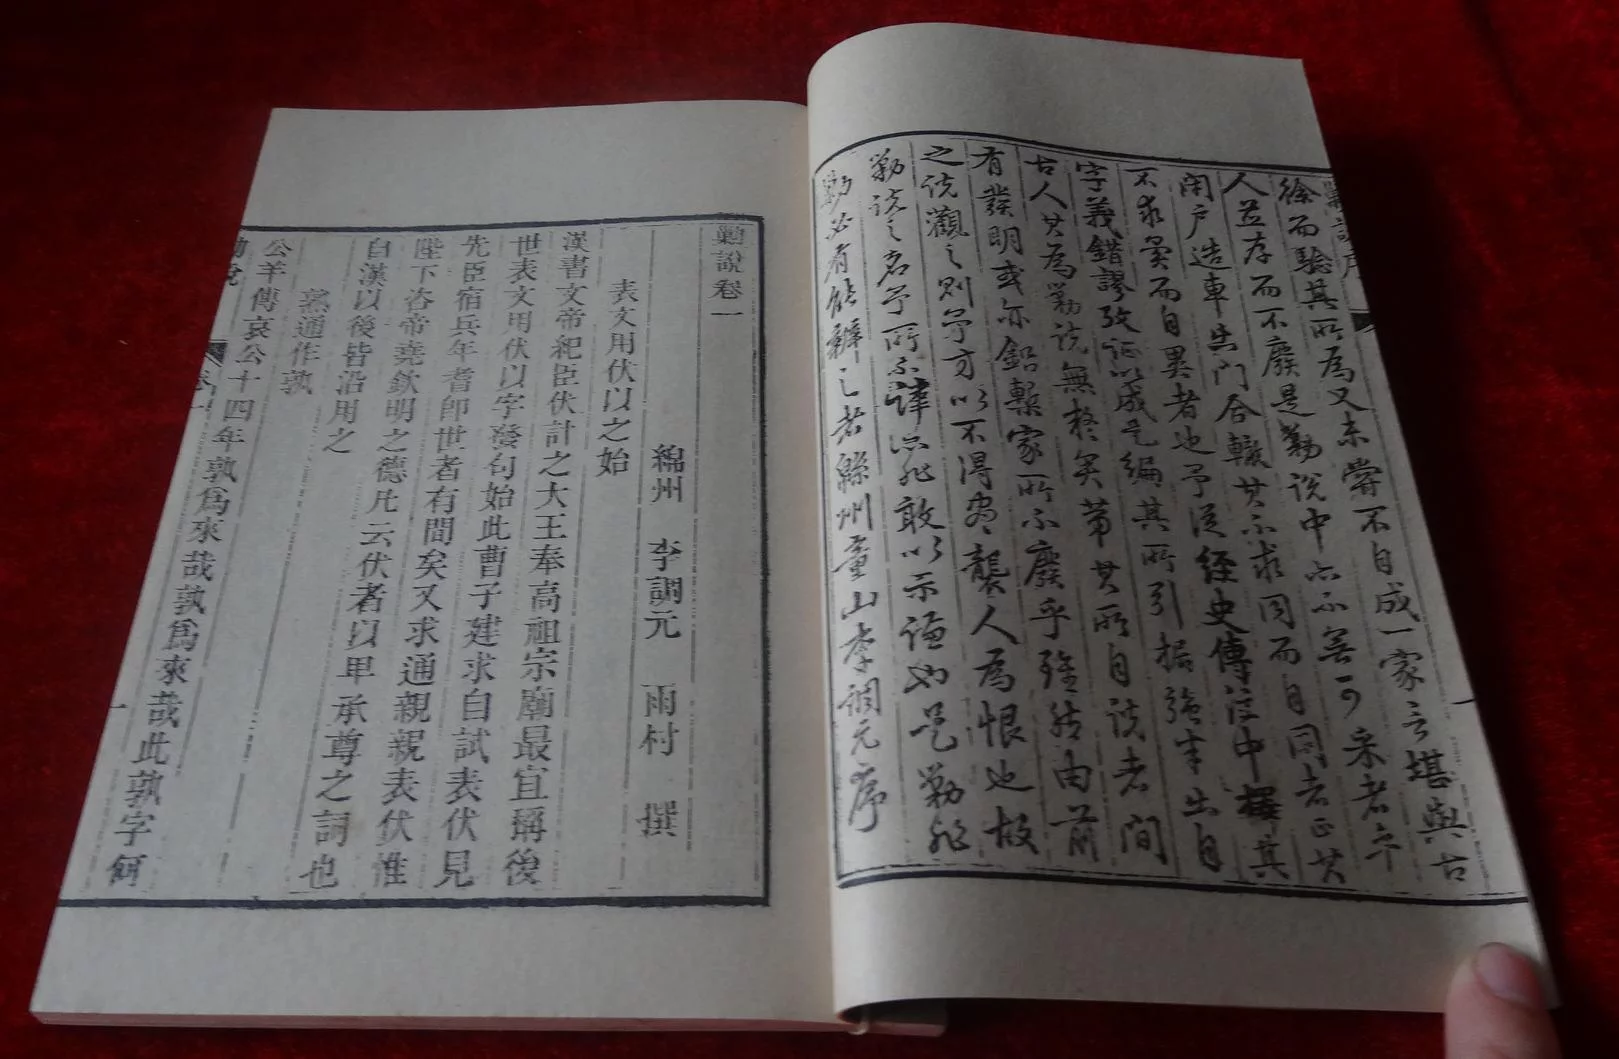 勦說序
徐而驗其所為又未嘗不自成一家言堪與古
人並存而不廢是勦說中亦不無可采者乎
閉戶造車出門合轍其不求同而自同者正其
不求異而自異者也予從經史傳注中擇其
字義錯謬攷証以成是編其所引据強半出自
古人其為勦說無疑矣第其所自說者間
有發明或亦鉛槧家所不廢乎雖然由前
之說觀之則予方以不得盡襲人為恨也故
勦說之名予所不諱亦非敢以示謙也是勦非
勦必有能辨之者緜州童山李調元序
勦說卷一
綿州 李調元 雨村 撰
表文用伏以之始
漢書文帝紀臣伏計之大王奉高祖宗廟最宜稱後
世表文用伏以字發句始此曹子建求自試表伏見
先臣宿兵年耆即世者有間矣又求通親親表伏惟
陛下咨帝堯欽明之德凡云伏者以卑承尊之詞也
自漢以後皆沿用之
熟通作孰
公羊傳哀公十四年孰爲來哉孰爲來哉此孰字何
勦說 卷一 一